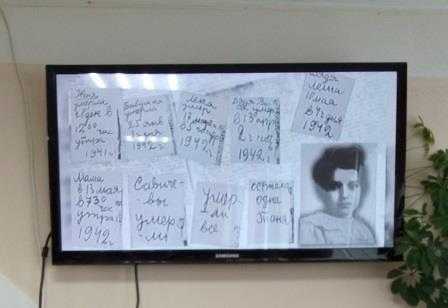 Женя
умерла
28 дек в
12 00 час
утра
1941 г.
Бабушка
умерла
25 янв
1942 г.
Лека
умер
17 марта
1942 г.
умер
в 13 апр
2 ч
1942 г.
Дядя
Леша
10 мая
в 4 ч дня
1942
Мама
в 13 мая
в 7 30 час
утра
1942 г.
Савиче-
вы
умер-
ли
Умер-
ли
все
Осталась
одна
Таня
SAMSUNG